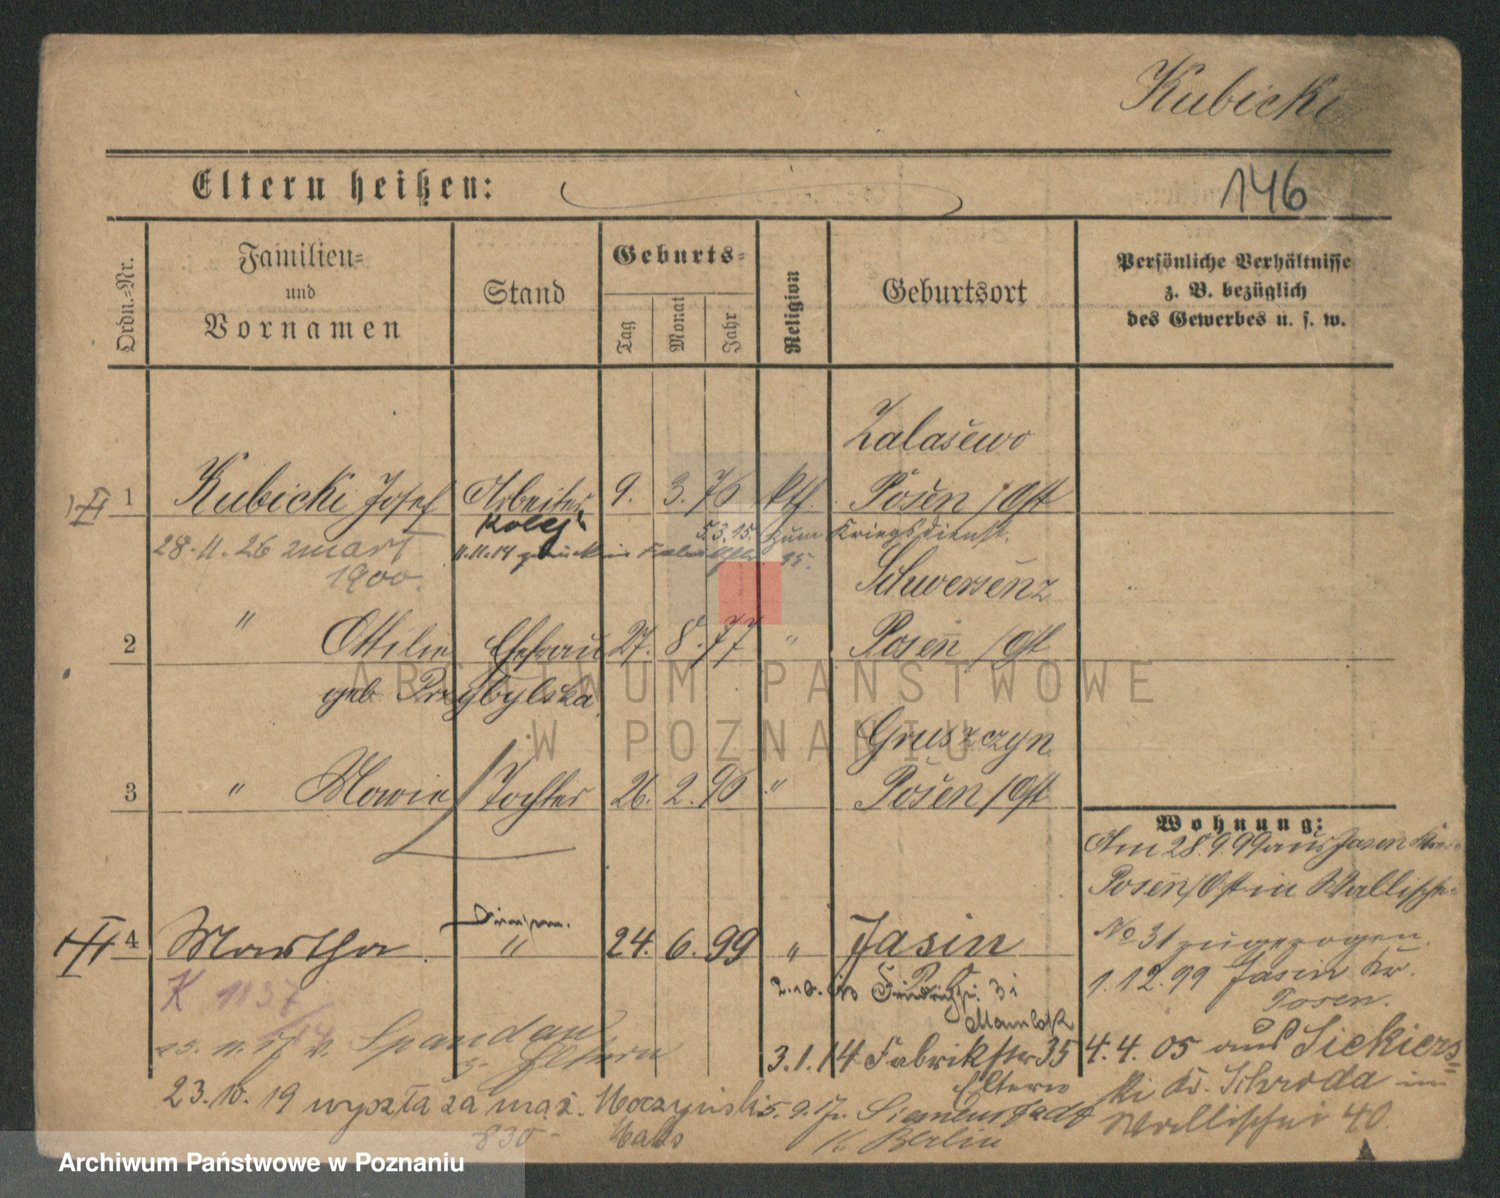 Kubicki
Eltern heißen:
146
Ordn.-Nr.
Familien-
und
Vornamen
Stand
Geburts-
Tag
Monat
Jahr
Religion
Geburtsort
Persönliche Verhältnisse
z. B. bezüglich
des Gewerbes u. s. w.
Zalasewo
1 Kubicki Josef Arbeiter 9. 3. 76 kth. Posen / Ost
5.3.15. zum Kriegsdienst.
28.11.26 zmarł
1900.
Schwersenz
2 " Ottilie Ehefrau 27. 8. 77 " Posen / Ost
geb. Przybylska
Gruszczyn
3 " Marie Tochter 26. 2. 96 " Posen / Ost
Wohnung:
Am 28.9.99 aus Jasin
Posen/Ost in Wallische
No 31 zugezogen.
4 Martha " 24. 6. 99 " Jasin
1.12.99 Jasin Kr.
Posen.
K 1137
31
25. 11. 17 n. Spandau
z. Eltern
3.1.14 Fabrikstr 35
Eltern
4.4.05 aus Siekiers=
ki Kr. Schroda in
Wallischei 40.
23.10.19 wyszła za mąż.
5.9.17 Siemensstadt
Berlin
830-
ARCHIWUM PAŃSTWOWE
W POZNANIU
Archiwum Państwowe w Poznaniu